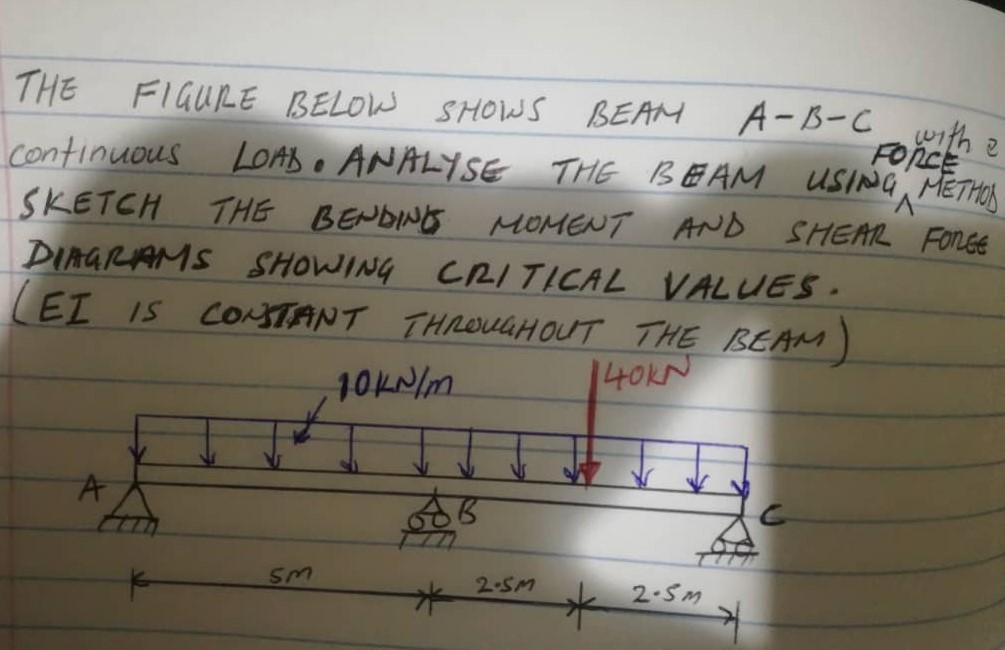 THE FIGURE BELOW SHOWS BEAM A-B-C with
continuous LOAD. ANALYSE THE BEAM USING FORCE METHOD
SKETCH THE BENDING MOMENT AND SHEAR FORCE
DIAGRAMS SHOWING CRITICAL VALUES.
(EI IS CONSTANT THROUGHOUT THE BEAM)
10KN/m
40KN
A
B
C
5m
2.5m
2.5m